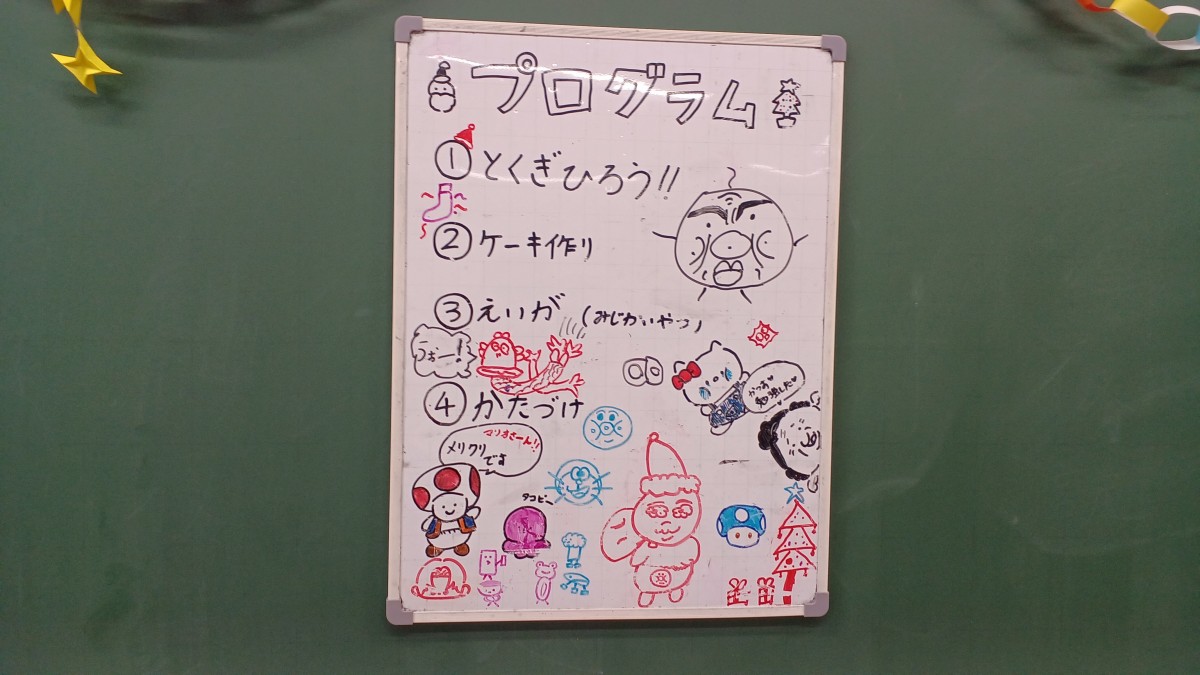 プログラム
①とくぎひろう!!
②ケーキ作り
③えいが (みじかいやつ)
うぉー!
④かたづけ
マリオさーん!!
メリクリ
です
タコピー